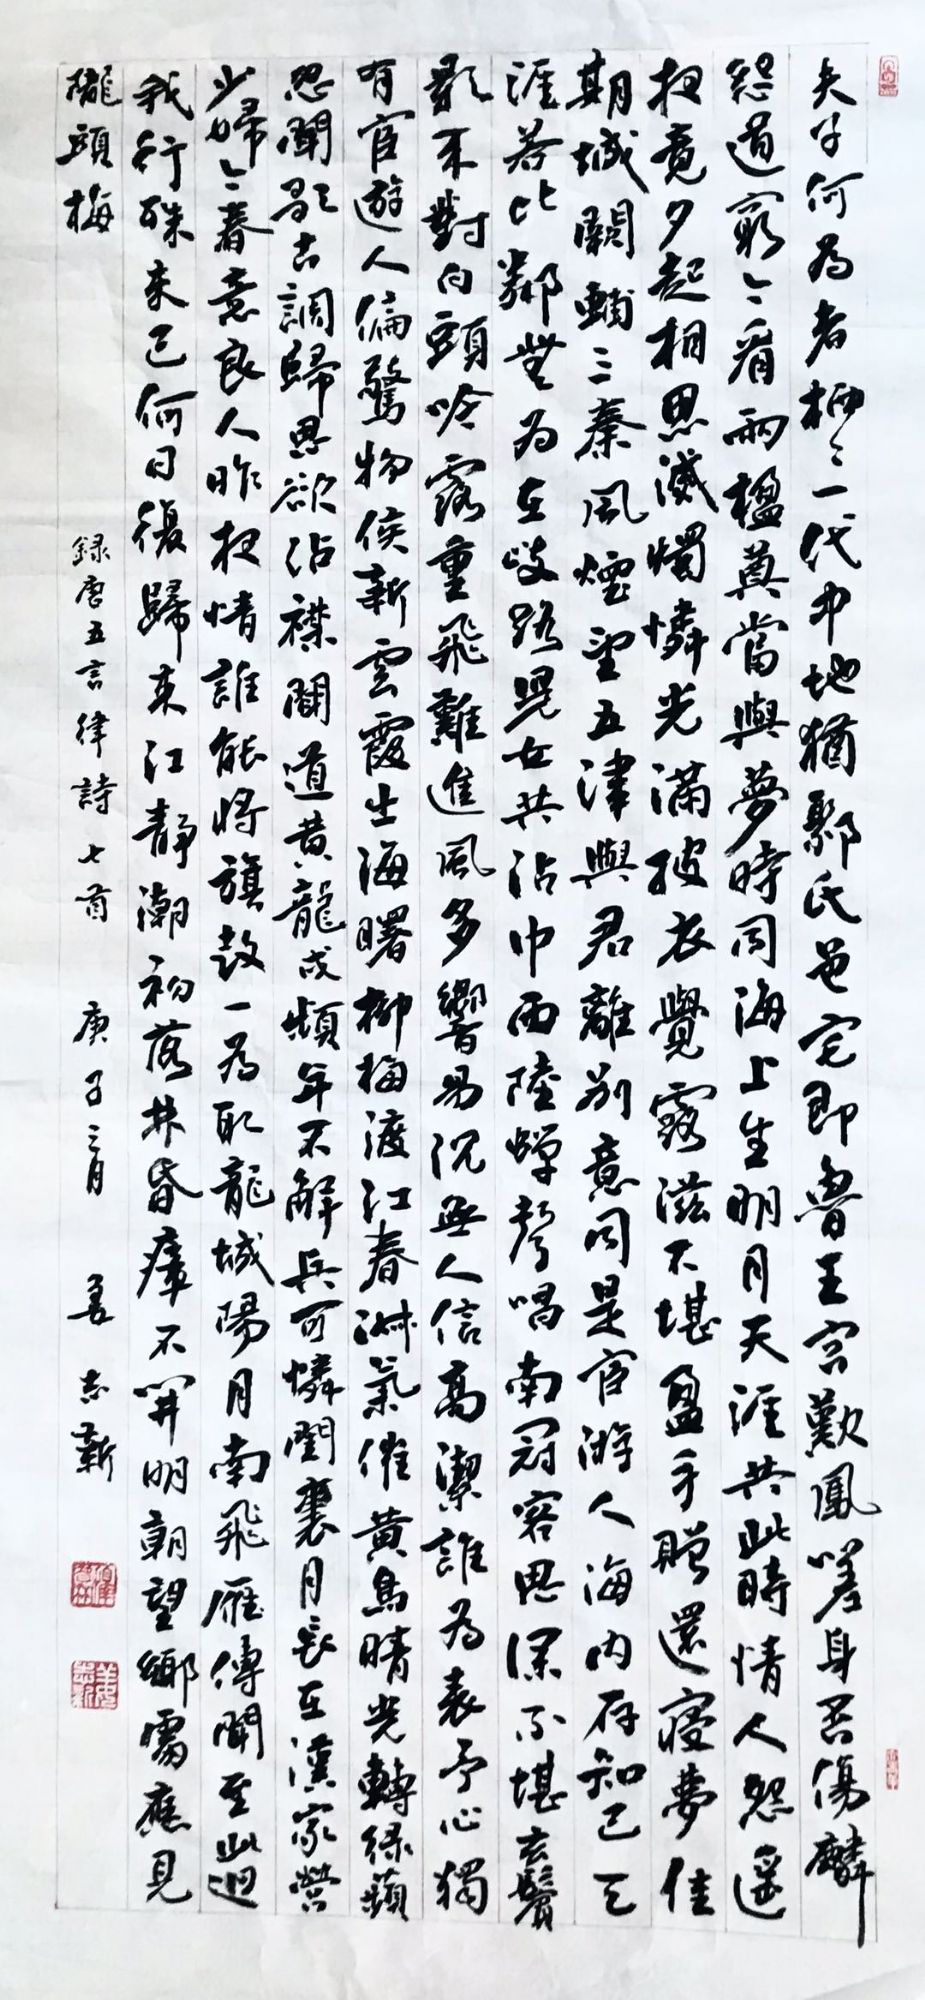 夫子何為者栖〻一代中地猶鄹氏邑宅即魯王宮歎鳳嗟身否傷麟
怨道窮〻看兩楹奠當與夢時同海上生明月天涯共此時情人怨遥
夜竟夕起相思滅燭憐光滿披衣覺露滋不堪盈手贈還寢夢佳
期城闕輔三秦風煙望五津與君離别意同是宦游人海内存知己天
涯若比鄰無為在歧路兒女共沾巾西陸蟬聲唱南冠客思深不堪玄鬢
影來對白頭吟露重飛難進風多響易沉無人信高潔誰為表予心獨
有宦遊人偏驚物候新雲霞出海曙柳梅渡江春淑氣催黄鳥晴光轉緑蘋
忽聞歌古調歸思欲沾襟聞道黄龍戍頻年不解兵可憐閨裏月長在漢家營
少婦〻春意良人昨夜情誰能将旗鼓一為取龍城陽月南飛雁傳聞至此迴
我行殊未已何日復歸來江靜潮初落林昏瘴不開明朝望鄉處應見
隴頭梅
録唐五言律詩七首 庚子三月 姜志新
姜志新